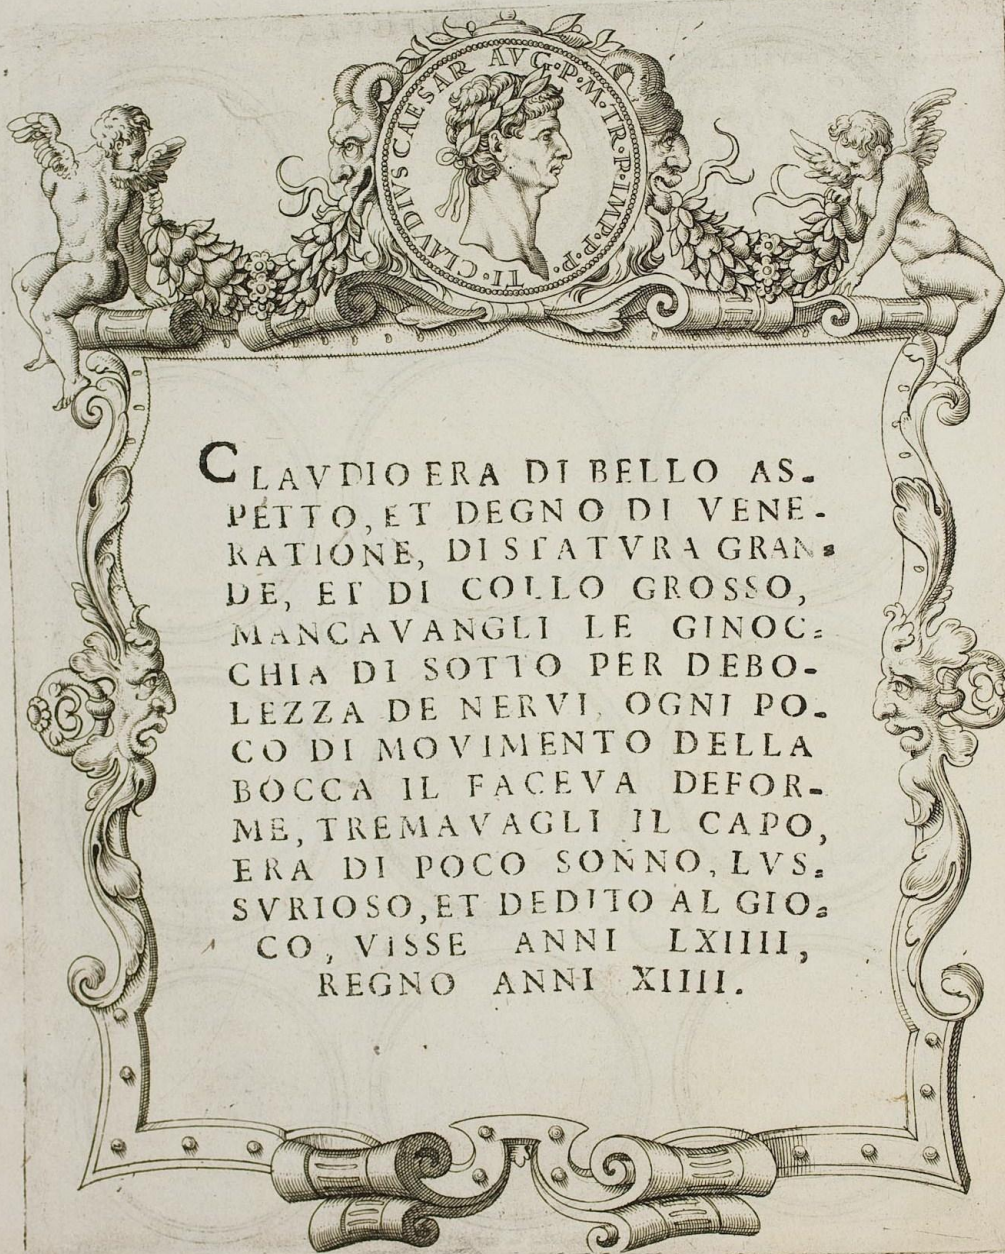 TI·CLAVDIVS CAESAR AVG·P·M·TR·P·IMP·P·P·
CLAVDIO ERA DI BELLO AS-
PETTO, ET DEGNO DI VENE-
RATIONE, DI STATVRA GRAN=
DE, ET DI COLLO GROSSO,
MANCAVANGLI LE GINOC=
CHIA DI SOTTO PER DEBO-
LEZZA DE NERVI, OGNI PO-
CO DI MOVIMENTO DELLA
BOCCA IL FACEVA DEFOR-
ME, TREMAVAGLI IL CAPO,
ERA DI POCO SONNO, LVS=
SVRIOSO, ET DEDITO AL GIO=
CO, VISSE ANNI LXIIII,
REGNO ANNI XIIII.